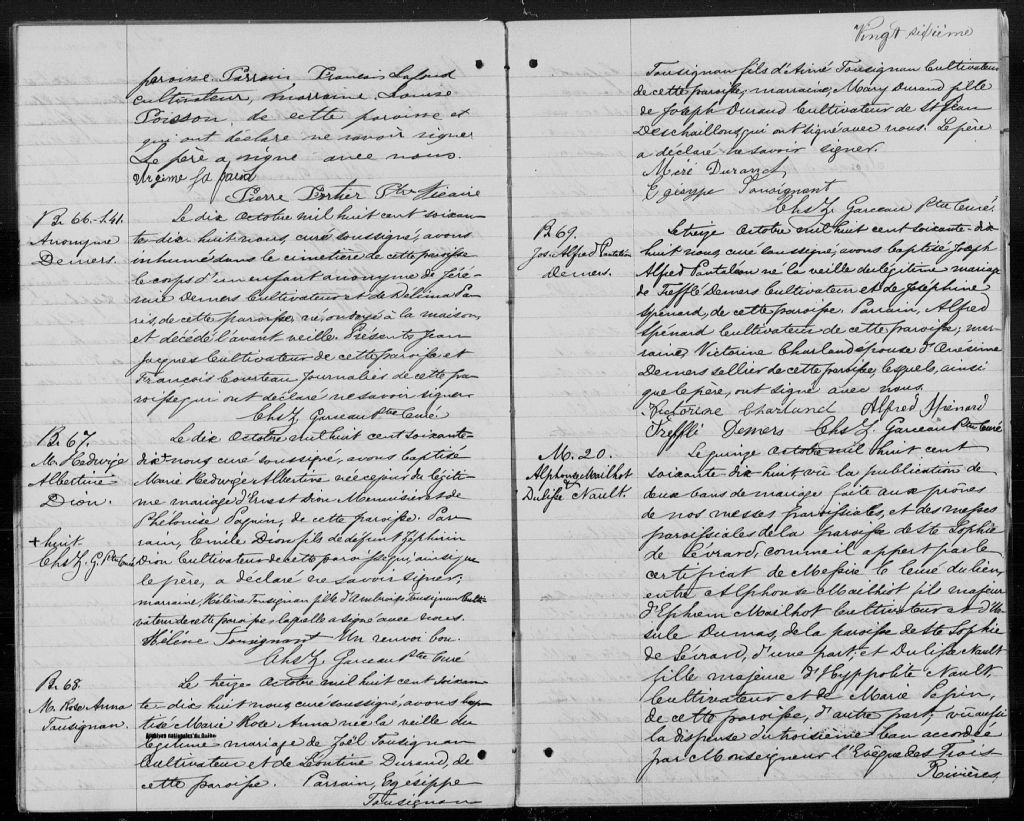 paroisse. Parrain Francois Lafond
cultivateur, marraine Louise
Poisson, de cette paroisse et
qui ont déclaré ne savoir signer
Le père a signé avec nous.
Pierre Portier Ptre Vicaire
B. 66-S.41.
Anonyme
Demers.
Le dix Octobre mil huit cent soixan-
te-dix-huit nous, curé soussigné, avons
inhumé dans le cimetière de cette paroisse
le corps d'un enfant anonyme de Jéré-
mie Demers Cultivateur et de Délina Pa-
ris, de cette paroisse, né, ondoyé à la maison,
et décédé l'avant veille. Présents Jean
Jacques Cultivateur de cette paroisse et
François Courteau Journalier de cette pa-
roisse qui ont déclaré ne savoir signer.
Chs Z. Garceau Ptre Curé
B. 67.
M. Hedwige
Albertine
Dion.
+ huit.
Chs Z. G. Ptre Curé
Le dix Octobre mil huit cent soixante-
dix+ nous curé soussigné, avons baptisé
Marie Hedwige Albertine née ce jour du légiti-
me mariage d'Ernest Dion Menuisier et de
Philonise Paquin, de cette paroisse. Par-
rain, Emile Dion fils de défunt Zéphirin
Dion Cultivateur de cette paroisse qui, ainsi que
le père, a déclaré ne savoir signer;
marraine Hélène Tousignan fille d'Ambroise Tousignan Culti-
vateur de cette paroisse laquelle a signé avec nous.
Hélène Tousignant Un renvoi bon.
Chs Z. Garceau Ptre Curé
B. 68.
M. Rose Anna
Tousignan.
Le treize Octobre mil huit cent soixan-
te-dix-huit nous, curé soussigné, avons bap-
tisé Marie Rose Anna née la veille du
Archives nationales du Québec
légitime mariage de Joël Tousignan
Cultivateur et de Léontine Durand, de
cette paroisse. Parrain, Egésippe
Tousignan
Vingt sixième
Tousignan fils d'Aimé Tousignan Cultivateur
de cette paroisse; marraine, Mary Durand fille
de Joseph Durand Cultivateur de St Jean
Deschaillons, qui ont signé avec nous. Le père
a déclaré ne savoir signer.
Méré Durand
Egésyppe Tousignant
Chs Z. Garceau Ptre Curé.
B. 69.
Jos. Alfred Pantaléon
Demers.
Le treize Octobre mil huit cent soixante-dix-
huit nous, curé soussigné, avons baptisé Joseph
Alfred Pantaléon né la veille du légitime mariage
de Trefflé Demers Cultivateur et de Joséphine
Spénard, de cette paroisse. Parrain, Alfred
Spénard Cultivateur de cette paroisse; mar-
raine, Victorine Charland épouse d'Onésime
Demers sellier de cette paroisse, lesquels, ainsi
que le père, ont signé avec nous.
Victorine Charland Alfred Spénard
Trefflé Demers Chs Z. Garceau Ptre Curé
M. 20.
Alphonse Mailhot
&
Dulisse Nault.
Le quinze Octobre mil huit cent
soixante dix huit, vu la publication de
deux bans de mariage faite aux prônes
de nos messes paroissiales, et des messes
paroissiales de la paroisse de Ste Sophie
de Lévrard, comme il appert par le
certificat de Messire le Curé du lieu,
entre Alphonse Mailhot fils majeur
d'Ephrem Mailhot Cultivateur et d'Ur-
sule Dumas, de la paroisse de Ste Sophie
de Lévrard, d'une part; et Dulisse Nault
fille majeure d'Hyppolite Nault
Cultivateur et de Marie Pepin,
de cette paroisse, d'autre part; vu aussi
la dispense du troisième ban accordée
par Monseigneur l'Evêque des Trois
Rivières,